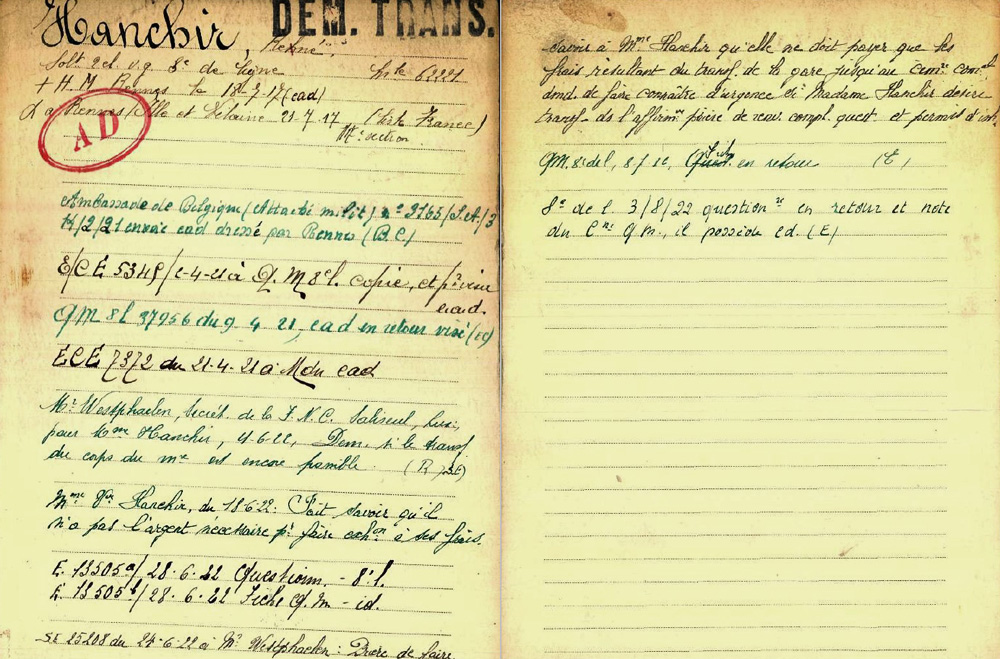 DEM. TRANS.
Hanchir,
Solt 2 cl. v.g. 8e de ligne liste 62221
+ H. M. Rennes le 18-7-17 (cad)
à Rennes / Ille et Vilaine 21-7-17 France)
section
AD
Ambassade de Belgique (Attaché milit) no 3165/S.A./3
14/2/21 envoie cad dressé par Rennes (B.C)
E/CE 5349/2-4-21 à Q. M 8e l. copie, et pr visa
e.a.d.
QM 8 l 37956 du 9. 4. 21, cad en retour visé
ECE 7372 du 21-4-21 à Mdn cad
Mr Westphaelen, Secrét. de la F.N.C.
pour Mme Hanchir, 4-6-22, Dem. si le transf.
du corps du me est encore possible.
Mme Hanchir, du 18-6-22: Fait savoir qu'il
n'a pas l'argent nécessaire pr faire à ses frais.
E. 13505a/ 28-6-22 Questionn. - 8e l.
E. 13505b/ 28-6-22 Fiche Q. M - id.
SE 25208 du 24-6-22 à Mr Westphaelen: Prière de faire
savoir à Mme Hanchir qu'elle ne doit payer que les
frais résultant du transf. de la gare jusqu'au
dmd. de faire connaître d'urgence si Madame Hanchir désire
transf. ds l'affirm prière de renv. compl. quest. et permis
QM. 8e de l, 8/7/22, en retour (E)
8e de l 3/8/22 questionre en retour et note
du Cne QM., il possède cd. (E)